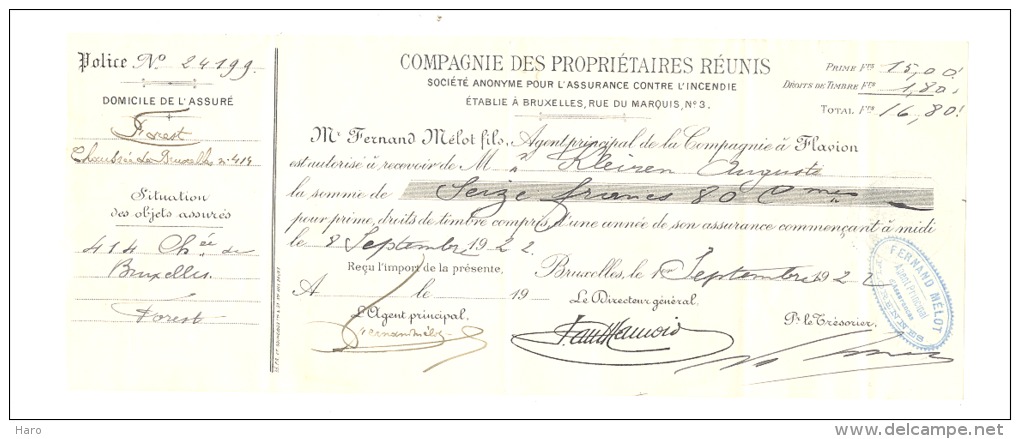 Police No 24199.
DOMICILE DE L'ASSURÉ
Forest
Chaussée de Bruxelles n° 414
Situation
des objets assurés
414 Chée de
Bruxelles.
Forest
COMPAGNIE DES PROPRIÉTAIRES RÉUNIS
SOCIÉTÉ ANONYME POUR L'ASSURANCE CONTRE L'INCENDIE
ÉTABLIE À BRUXELLES, RUE DU MARQUIS, No 3.
PRIME Fcs 15,00!
DROITS DE TIMBRE Fcs 1,80.
TOTAL Fcs 16,80!
Mr Fernand Mélot fils, Agent principal de la Compagnie à Flavion
est autorisé à recevoir de M " Kleiren Auguste
la somme de Seize francs 80 Cmes
pour prime, droits de timbre compris, d'une année de son assurance commençant à midi
le 8 Septembre 1922.
Reçu l'import de la présente. Bruxelles, le 1er Septembre 1922
A le 19 Le Directeur général.
L'Agent principal. Pr le Trésorier.
Fernand Mélot
FERNAND MÉLOT
Agent Principal
Haro
delcampe.net